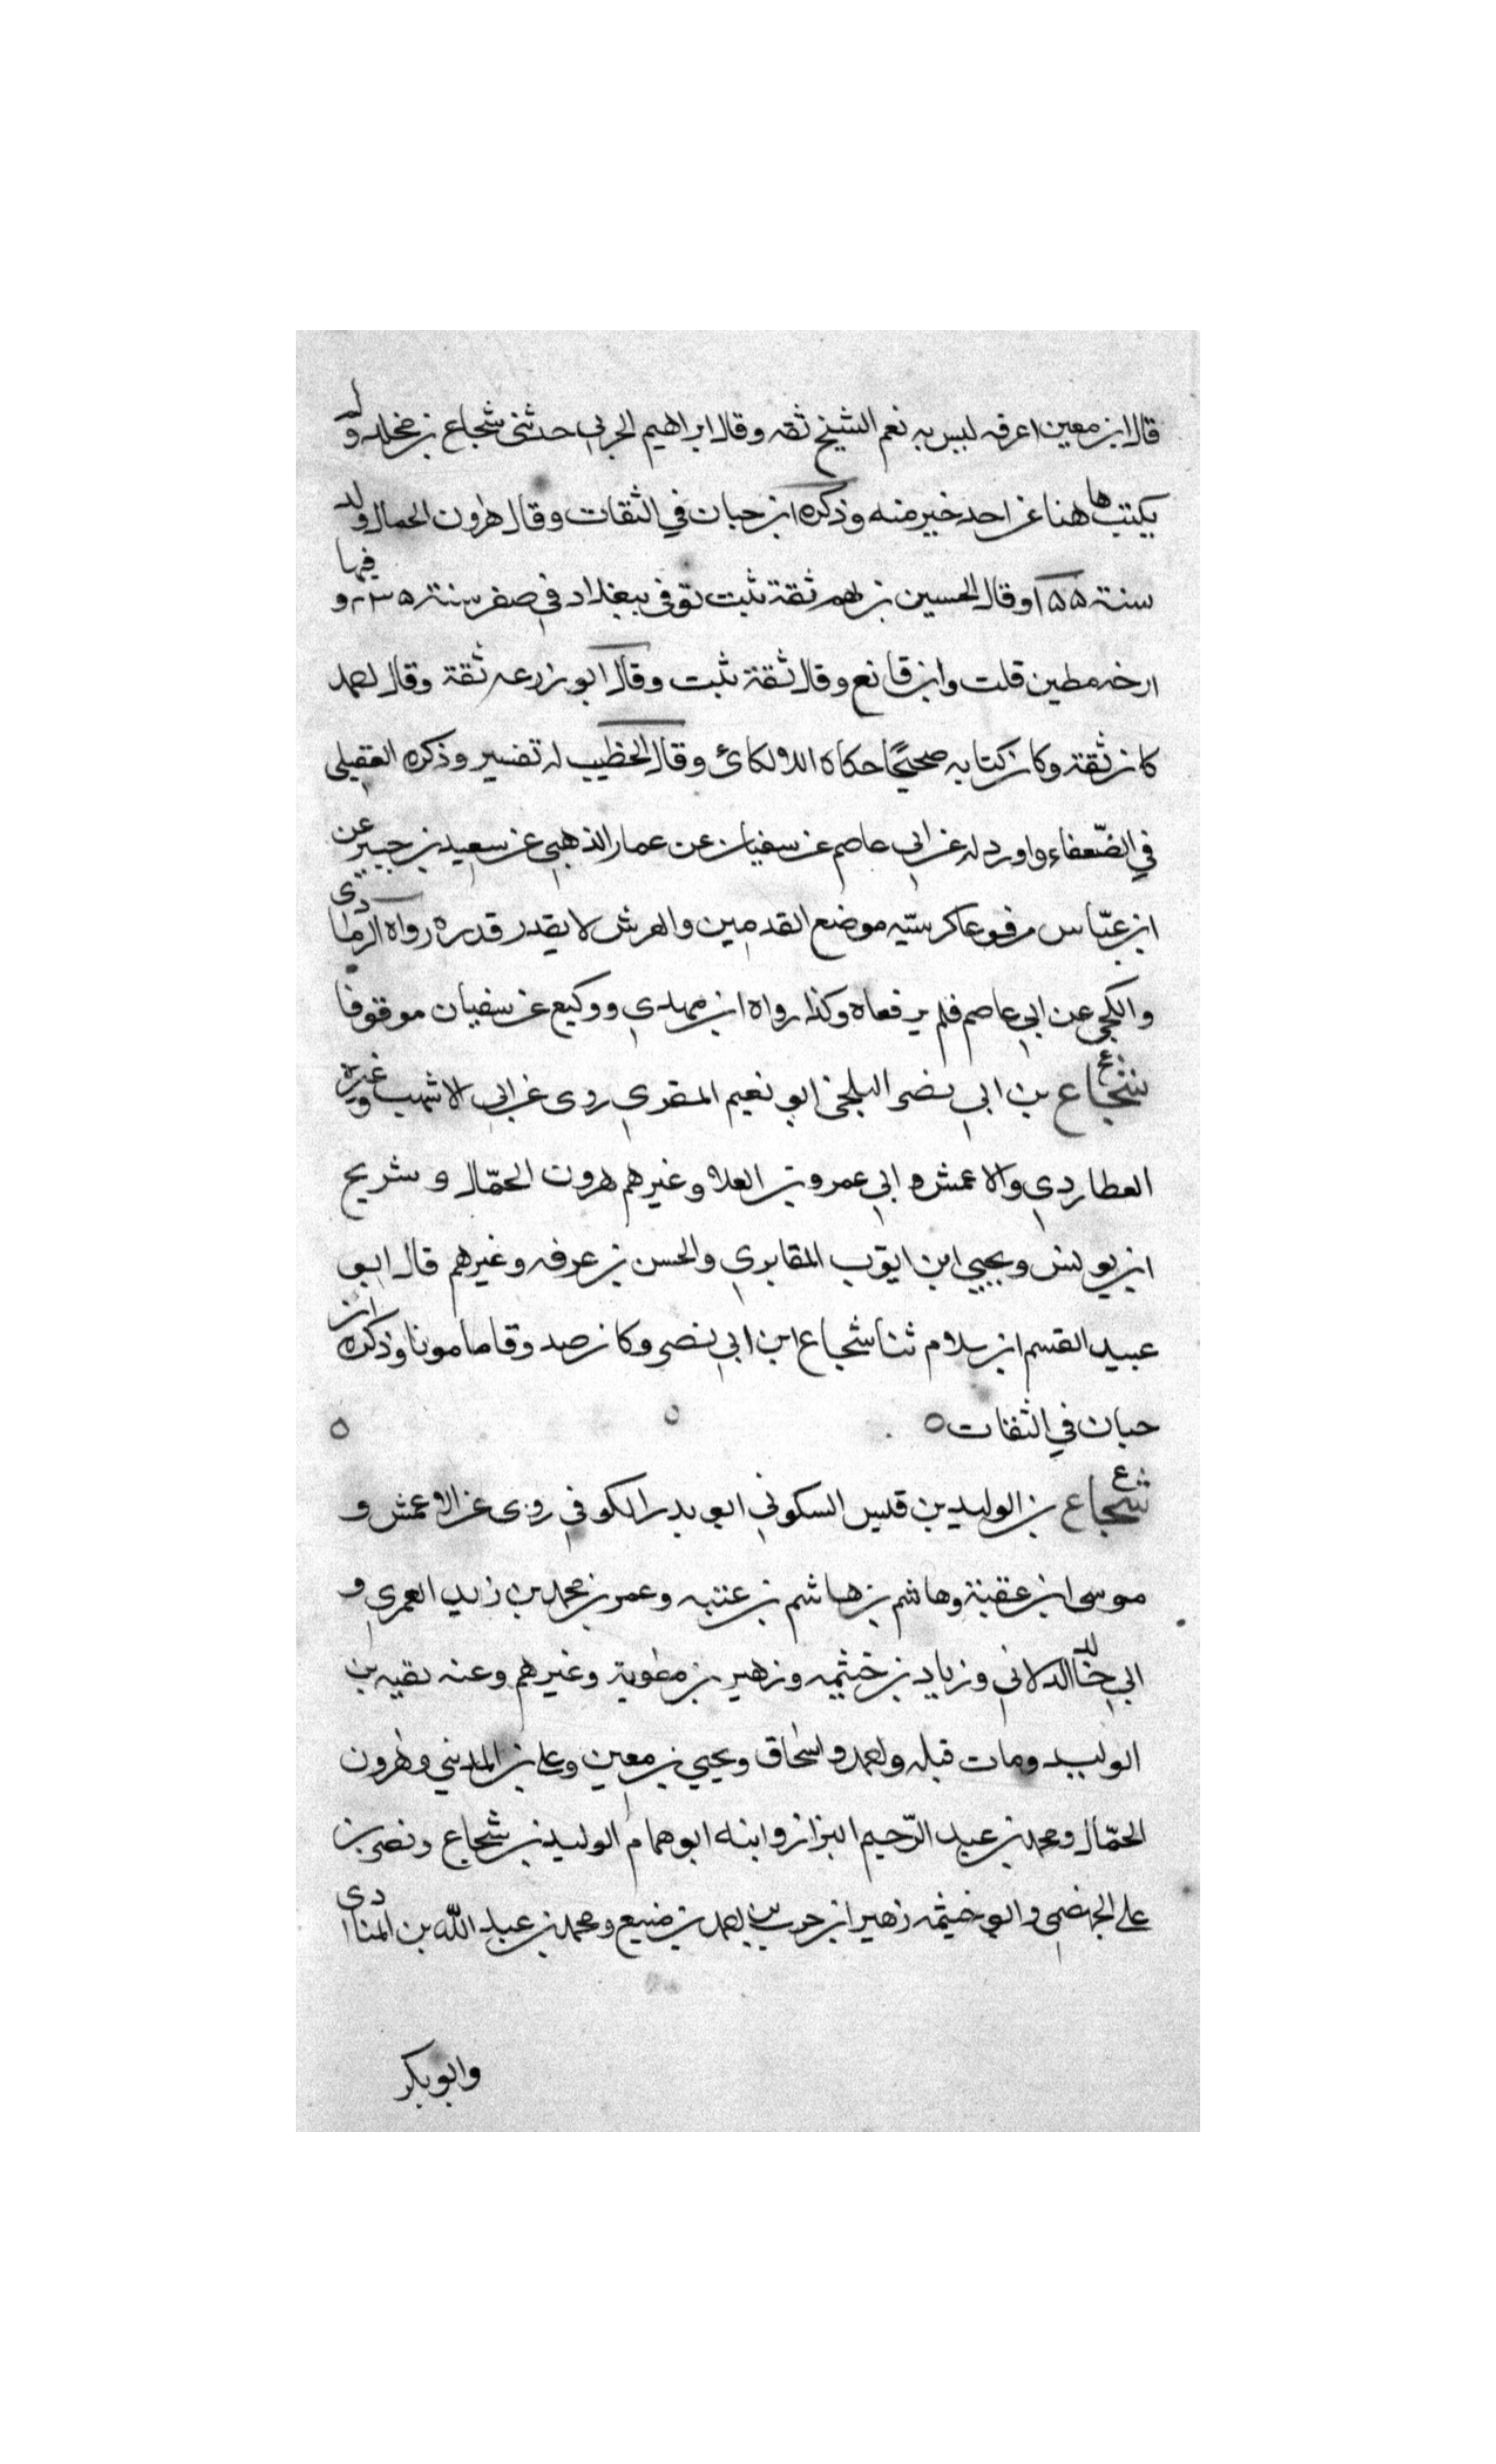 قال ابن معين اعرفه ليس به نعم الشيخ ثقه وقال ابراهيم الحربي حدثني شجاع بن مخلد ولم
يكتب ها هنا عن احد خير منه وذكره ابن حبان في الثقات وقال هرون الحمال ولد
سنة ١٥٥ وقال الحسين بن فهم ثقة ثبت توفي ببغداد في صفر سنة ٢٣٥ وفيها
ارخه مطين قلت وابن قانع وقال ثقة ثبت وقال ابو زرعه ثقة وقال احمد
كان ثقة وكان كتابه صحيحًا حكاه اللالكائ وقال الخطيب له تفسير وذكره العقيلي
في الضّعفاء واورد له عن ابي عاصم عن سفيان عن عمار الذهبي عن سعيد بن جبير عن
ابن عبّاس مرفوعا كرسيّه موضع القدمين والعرش لا يقدر قدره رواه الرمادى
والكجي عن ابي عاصم فلم يرفعاه وكذا رواه ابن مهدي ووكيع عن سفيان موقوفا
شجاع بن ابي نصر البلخي ابو نعيم المقري روى عن ابي الاشهب وغيره
العطاردي والاعمش وابي عمرو بن العلا وغيرهم هرون الحمّال وسريج
ابن يونس ويحيي ابن ايوّب المقابري والحسن بن عرفه وغيرهم قال ابو
عبيد القسم ابن سلام ثنا شجاع ابن ابي نصر وكان صدوقا مامونا وذكره ابن
حبان في الثقات ٥ ٥ ٥
شجاع ع بن الوليد بن قيس السكوني ابو بدر الكوفي روى عن الاعمش و
موسى ابن عقبة وهاشم بن هاشم بن عتبه وعمر بن محمد بن زيد العمري و
ابي خالد الدالاني وزياد بن خيثمه وزهير بن معوية وغيرهم وعنه بقيه بن
الوليد ومات قبله واحمد واسحاق ويحيي بن معين وعلي بن المديني وهرون
الحمّال ومحمد بن عبد الرّحيم البزاز وابنه ابو همام الوليد بن شجاع ونصر بن
علي الجهضمي وابو خيثمه زهير ابن حرب احمد بن منيع ومحمد بن عبد الله بن المنادى
وابو بكر